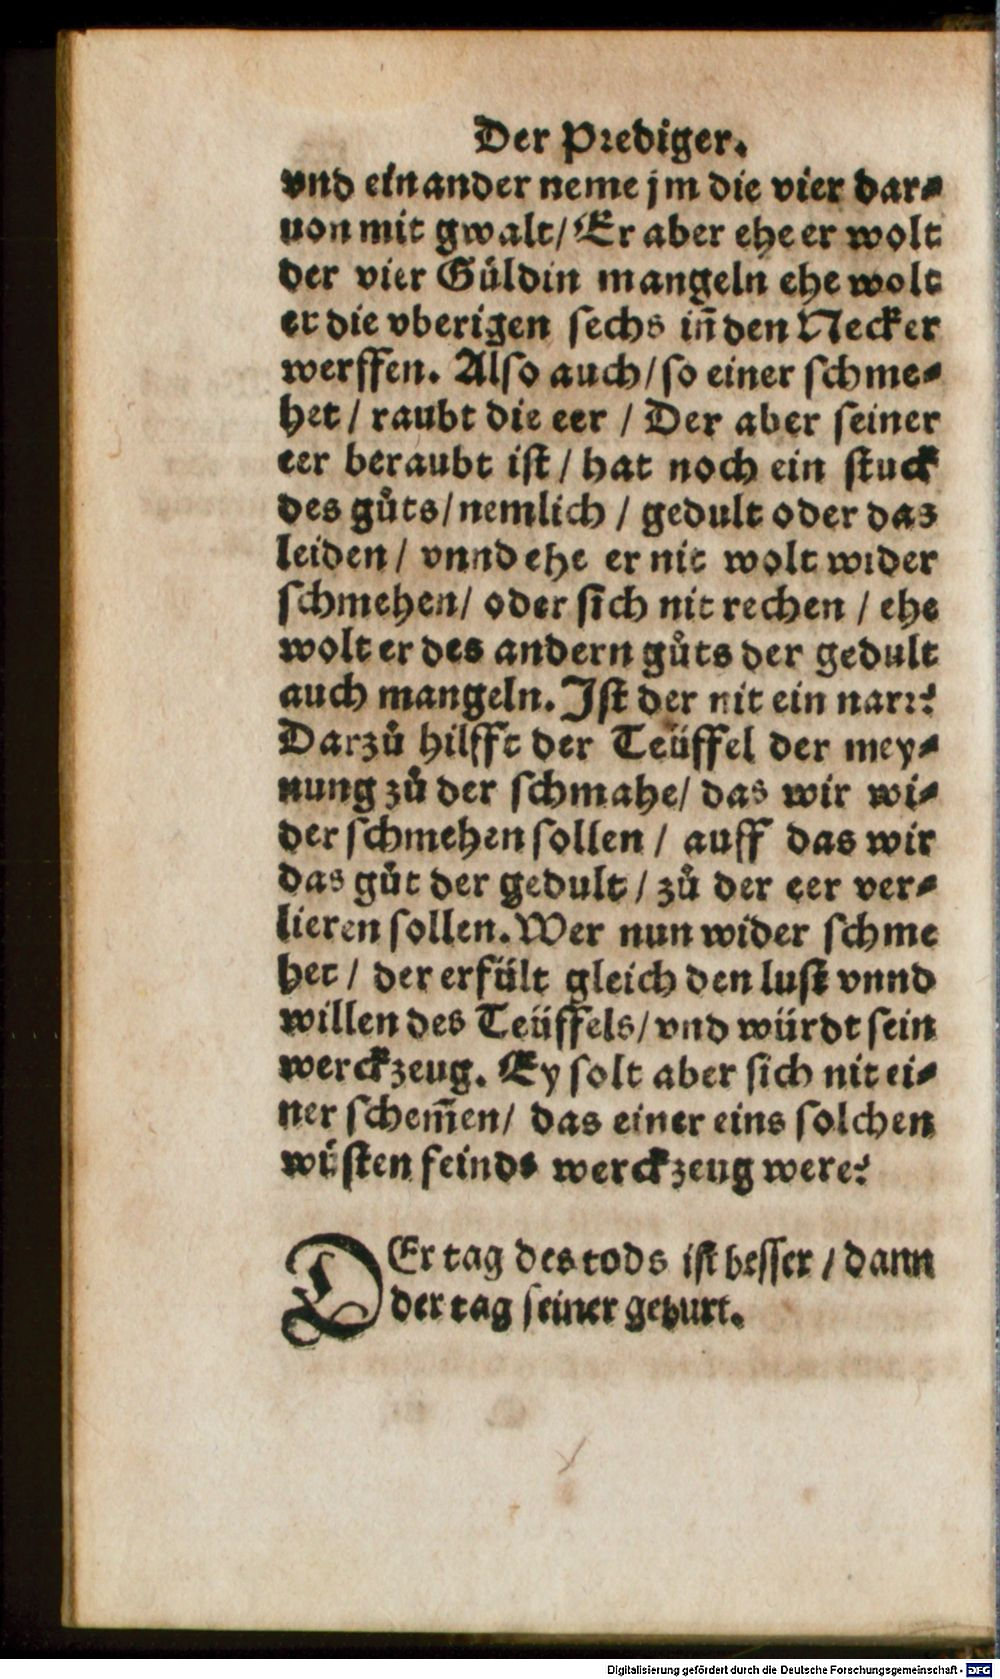 Der Prediger.
vnd ein ander neme jm die vier dar⸗
uon mit gwalt/ Er aber ehe er wolt
der vier Güldin mangeln ehe wolt
er die vberigen sechs iñ den Necker
werffen. Also auch/ so einer schme⸗
het / raubt die eer / Der aber seiner
eer beraubt ist / hat noch ein stuck
des gůts/ nemlich / gedult oder das
leiden / vnnd ehe er nit wolt wider
schmehen/ oder sich nit rechen / ehe
wolt er des andern gůts der gedult
auch mangeln. Ist der nit ein narr?
Darzů hilfft der Teüffel der mey⸗
nung zů der schmahe/ das wir wi⸗
der schmehen sollen / auff das wir
das gůt der gedult / zů der eer ver⸗
lieren sollen. Wer nun wider schme
het / der erfült gleich den lust vnnd
willen des Teüffels/ vnd würdt sein
werckzeug. Ey solt aber sich nit ei⸗
ner schem̃en/ das einer eins solchen
wüsten feinds werckzeug were?
DEr tag des tods ist besser / dann
der tag seiner geburt.
Digitalisierung gefördert durch die Deutsche Forschungsgemeinschaft - DFG